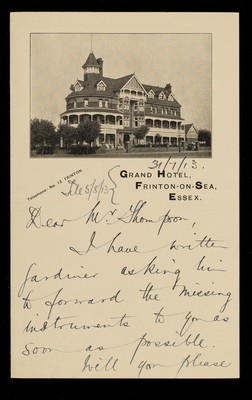 Telephone: No. 12 FRINTON.
31/7/13.
5/8/13
GRAND HOTEL,
FRINTON-ON-SEA,
ESSEX.
Dear Mr. Thompson,
I have written
Gardiner asking him
to forward the missing
instruments to you as
soon as possible.
Will you please